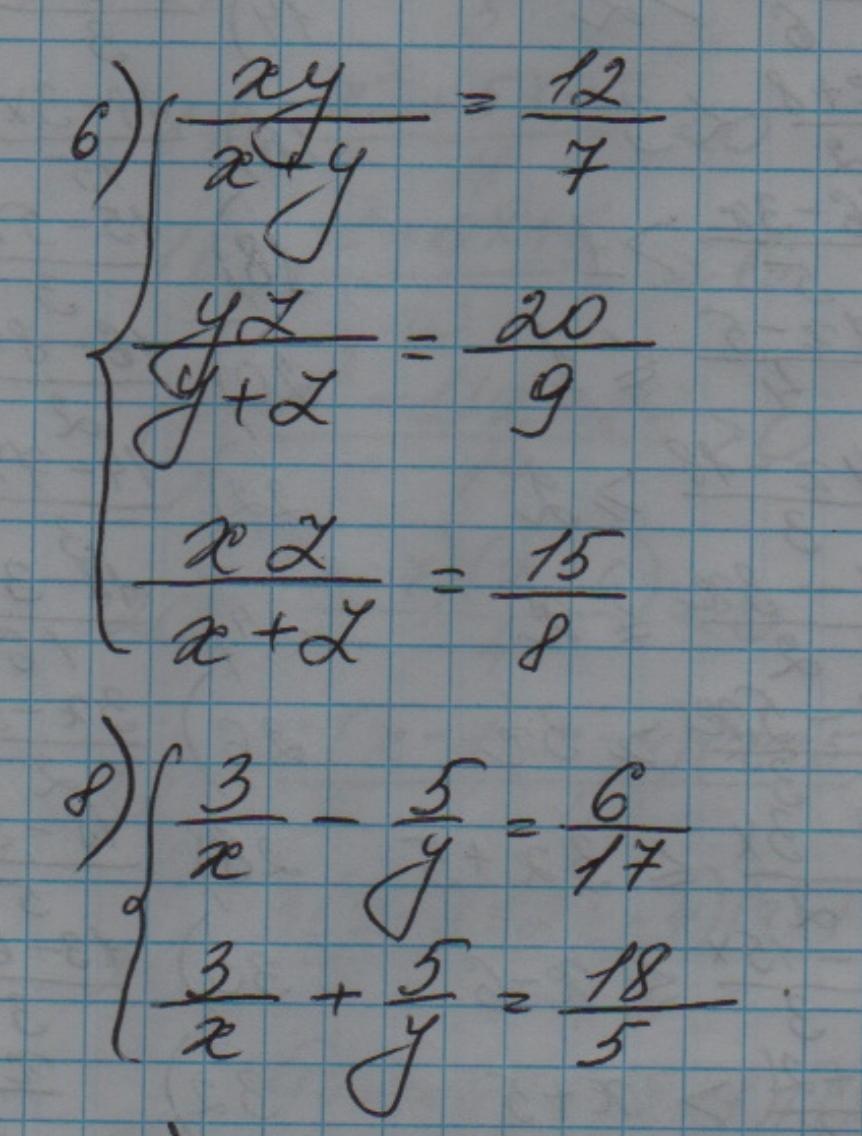 6) { xy/(x+y) = 12/7
yz/(y+z) = 20/9
xz/(x+z) = 15/8
8) { 3/x - 5/y = 6/17
3/x + 5/y = 18/5